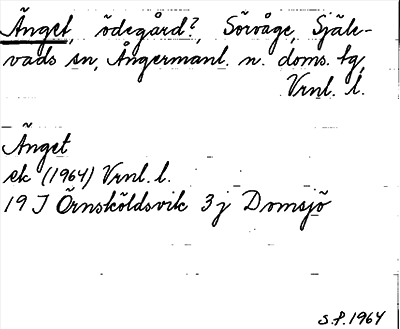 Änget, ödegård?, Sörvåge, Själe-
vads sn, Ångermanl. n. doms. tg,
Vrnl. l.
Änget
ek (1964) Vrnl. l.
19 I Örnsköldsvik 3 j Domsjö
S.P. 1964